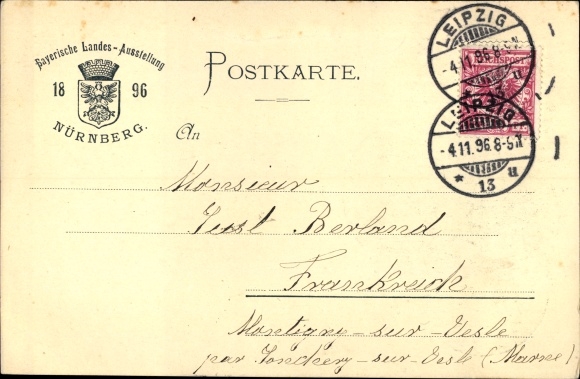 Bayerische Landes-Ausstellung
18 96
NÜRNBERG.
POSTKARTE.
An
LEIPZIG
-4.11.96.8-9N
* 13 u
REICHSPOST
LEIPZIG
-4.11.96.8-9N
* 13 u
Monsieur
Just Berland
Frankreich
Montigny-sur-Vesle
par Jonchery-sur-Vesle (Marne)